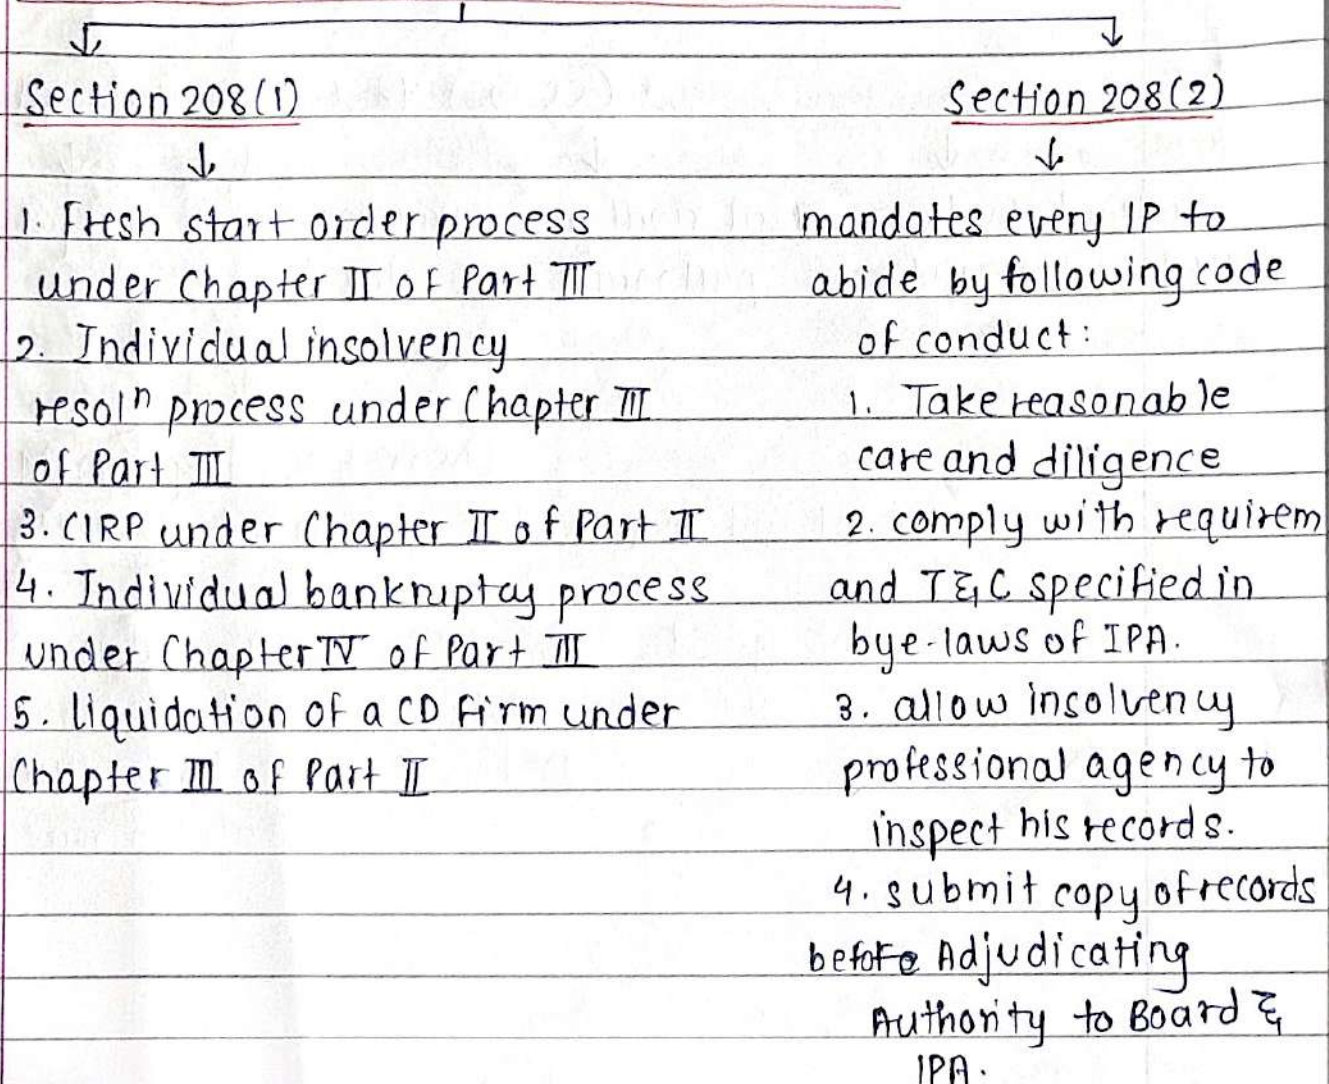 Section 208(1)
1. Fresh start order process
under Chapter II of Part III
2. Individual insolvency
resolⁿ process under Chapter III
of Part III
3. CIRP under Chapter II of Part II
4. Individual bankruptcy process
under Chapter IV of Part III
5. liquidation of a CD firm under
Chapter III of Part II
Section 208(2)
mandates every IP to
abide by following code
of conduct:
1. Take reasonable
care and diligence
2. comply with requirem
and T&C specified in
bye-laws of IPA.
3. allow insolvency
professional agency to
inspect his records.
4. submit copy of records
before Adjudicating
Authority to Board &
IPA.